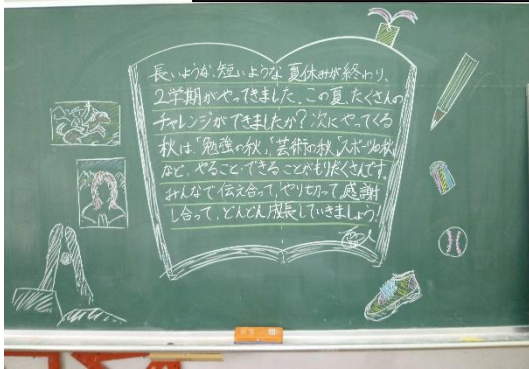 長いような、短いような夏休みが終わり、
2学期がやってきました。この夏、たくさんの
チャレンジができましたか？次にやってくる
秋は、「勉強の秋」、「芸術の秋」、「スポーツの秋」
など、やること・できることがもりだくさんです。
みんなで伝え合って、やり切って、感謝
し合って、どんどん成長していきましょう！